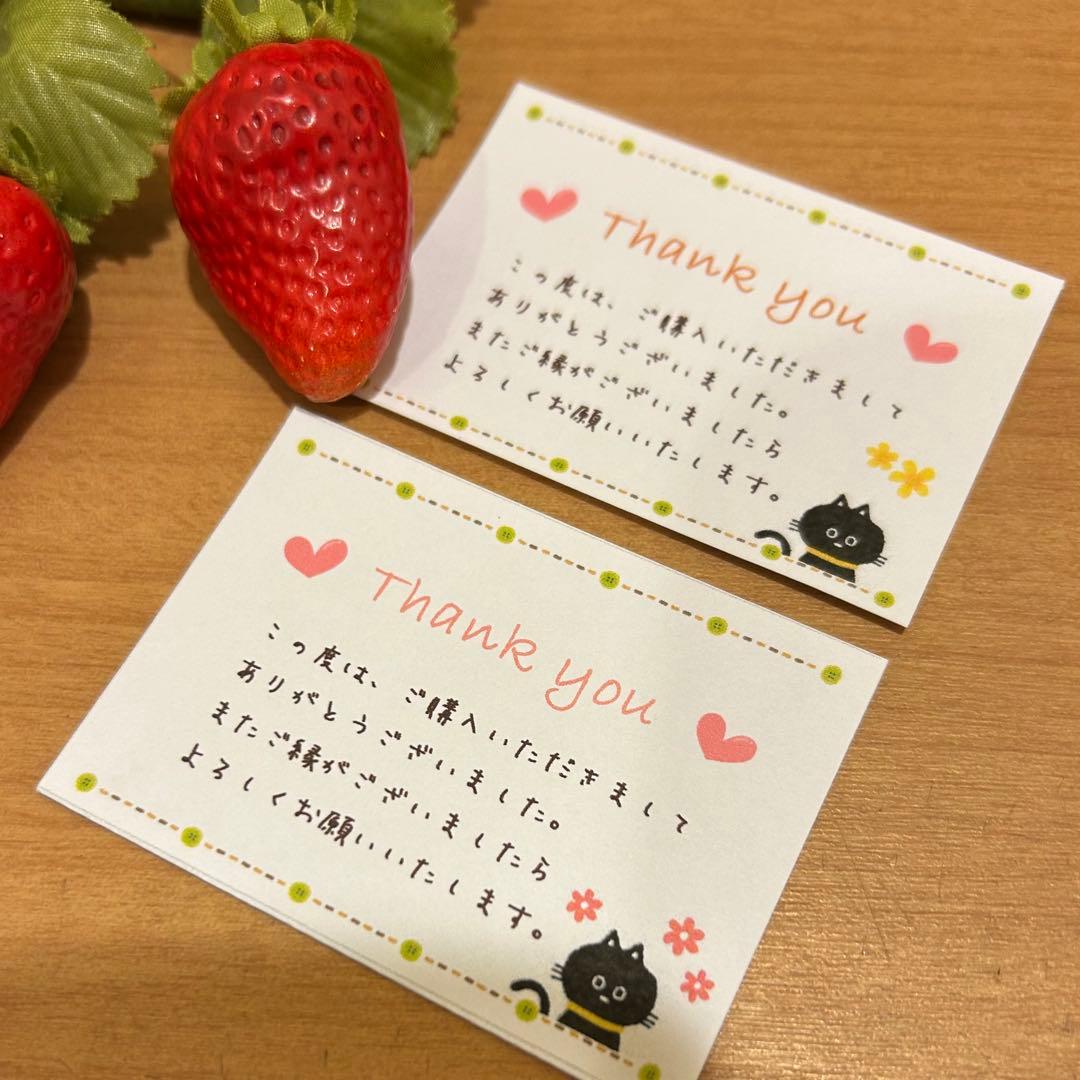 Thank you
この度は、ご購入いただきまして
ありがとうございました。
またご縁がございましたら
よろしくお願いいたします。
Thank you
この度は、ご購入いただきまして
ありがとうございました。
またご縁がございましたら
よろしくお願いいたします。